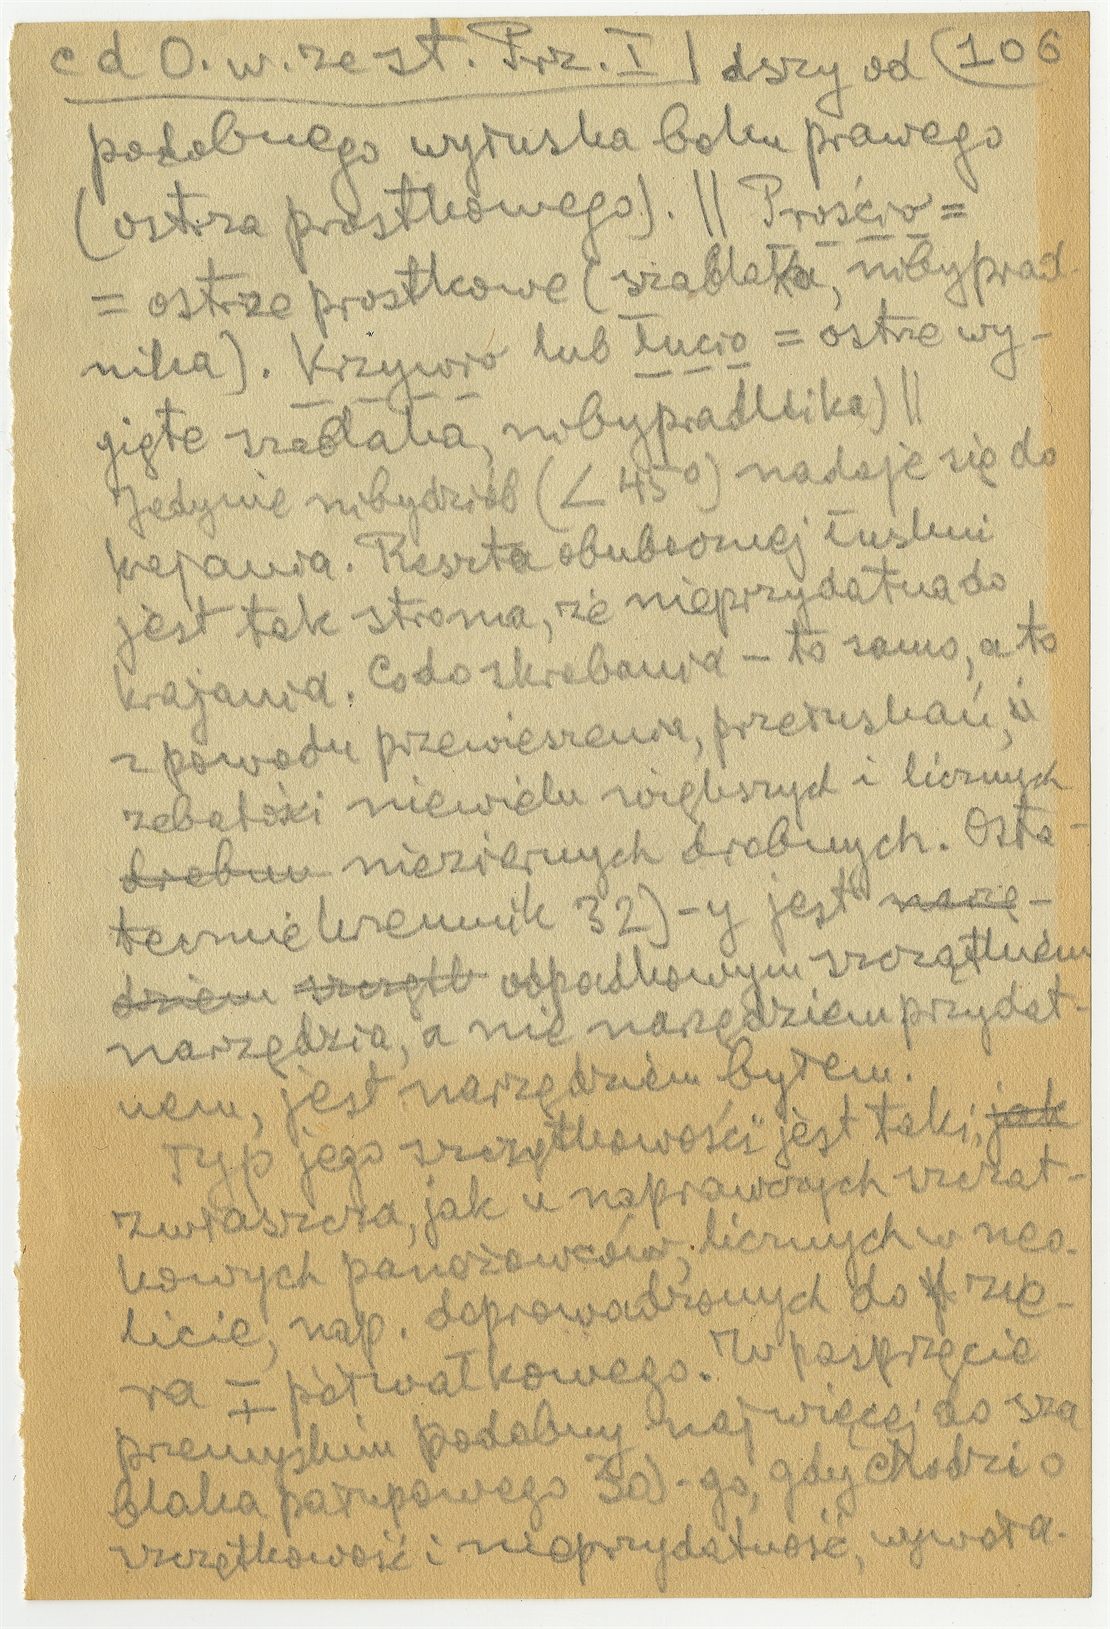 c d O. w. zest. Prz. I | dszy od (106
podobnego wyłuska boku prawego
(ostrza prostkowego). || Prościo =
= ostrze prostkowe (szablaka, nibyprad-
nika). Krzywio lub łucio = ostrze wy-
gięte szablaka, nibypradlnika) ||
Jedynie nibydziób (∠ 45°) nadaje się do
krajania. Reszta obubocznej łuskni
jest tak stroma, że nieprzydatna do
krajania. Co do skrobania – to samo, a to
z powodu przewieszenia, przełuskań, i
zebatości niewielu większych i licznych
drobnu nieziernych drobnych. Osta-
tecznie krzemnik 32)-y jest narzę-
dziem szczątk odpadkowym szczątkiem
narzędzia, a nie narzędziem przydat-
nem, jest narzędziem byłem.
Typ jego szczątkowości jest taki, jak
zwłaszcza, jak u naprawczych szcząt-
kowych panożowców, licznych w neo-
licie, nap. doprowadzonych do rzie-
ra ± półwałkowego. W posprzęcie
przemyskim podobny najwięcej do sza
blaka pałupowego 30)-go, gdy chodzi o
szczętkowość i nieprzydatność, wywoła-